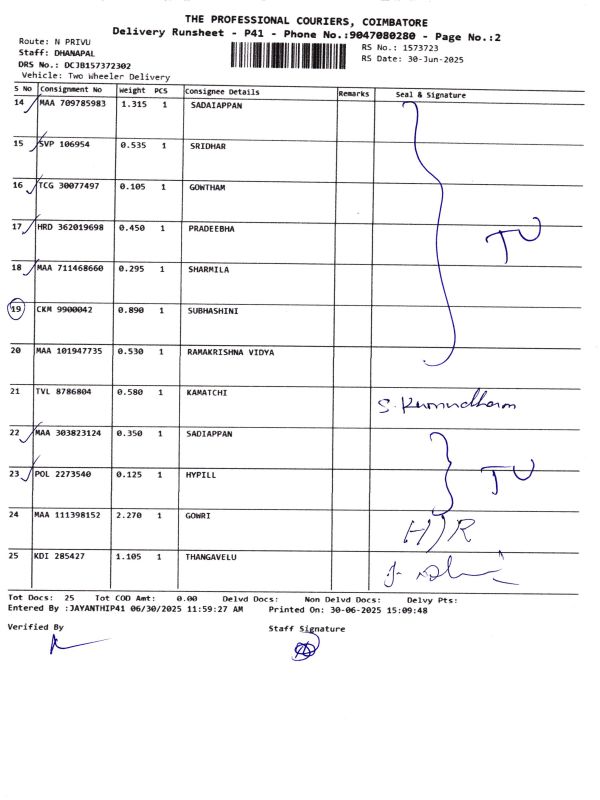 THE PROFESSIONAL COURIERS, COIMBATORE
Delivery Runsheet - P41 - Phone No.:9047080280 - Page No.:2
Route: N PRIVU
RS No.: 1573723
Staff: DHANAPAL
RS Date: 30-Jun-2025
DRS No.: DCJB157372302
Vehicle: Two Wheeler Delivery
S No Consignment No Weight PCS Consignee Details Remarks Seal & Signature
14 MAA 709785983 1.315 1 SADAIAPPAN
15 SVP 106954 0.535 1 SRIDHAR
16 TCG 30077497 0.105 1 GOWTHAM
17 HRD 362019698 0.450 1 PRADEEBHA
TU
18 MAA 711468660 0.295 1 SHARMILA
19 CKM 9900042 0.890 1 SUBHASHINI
20 MAA 101947735 0.530 1 RAMAKRISHNA VIDYA
21 TVL 8786804 0.580 1 KAMATCHI
22 MAA 303823124 0.350 1 SADIAPPAN
23 POL 2273540 0.125 1 HYPILL TU
24 MAA 111398152 2.270 1 GOWRI
25 KDI 285427 1.105 1 THANGAVELU
Tot Docs: 25 Tot COD Amt: 0.00 Delvd Docs: Non Delvd Docs: Delvy Pts:
Entered By :JAYANTHIP41 06/30/2025 11:59:27 AM Printed On: 30-06-2025 15:09:48
Verified By Staff Signature